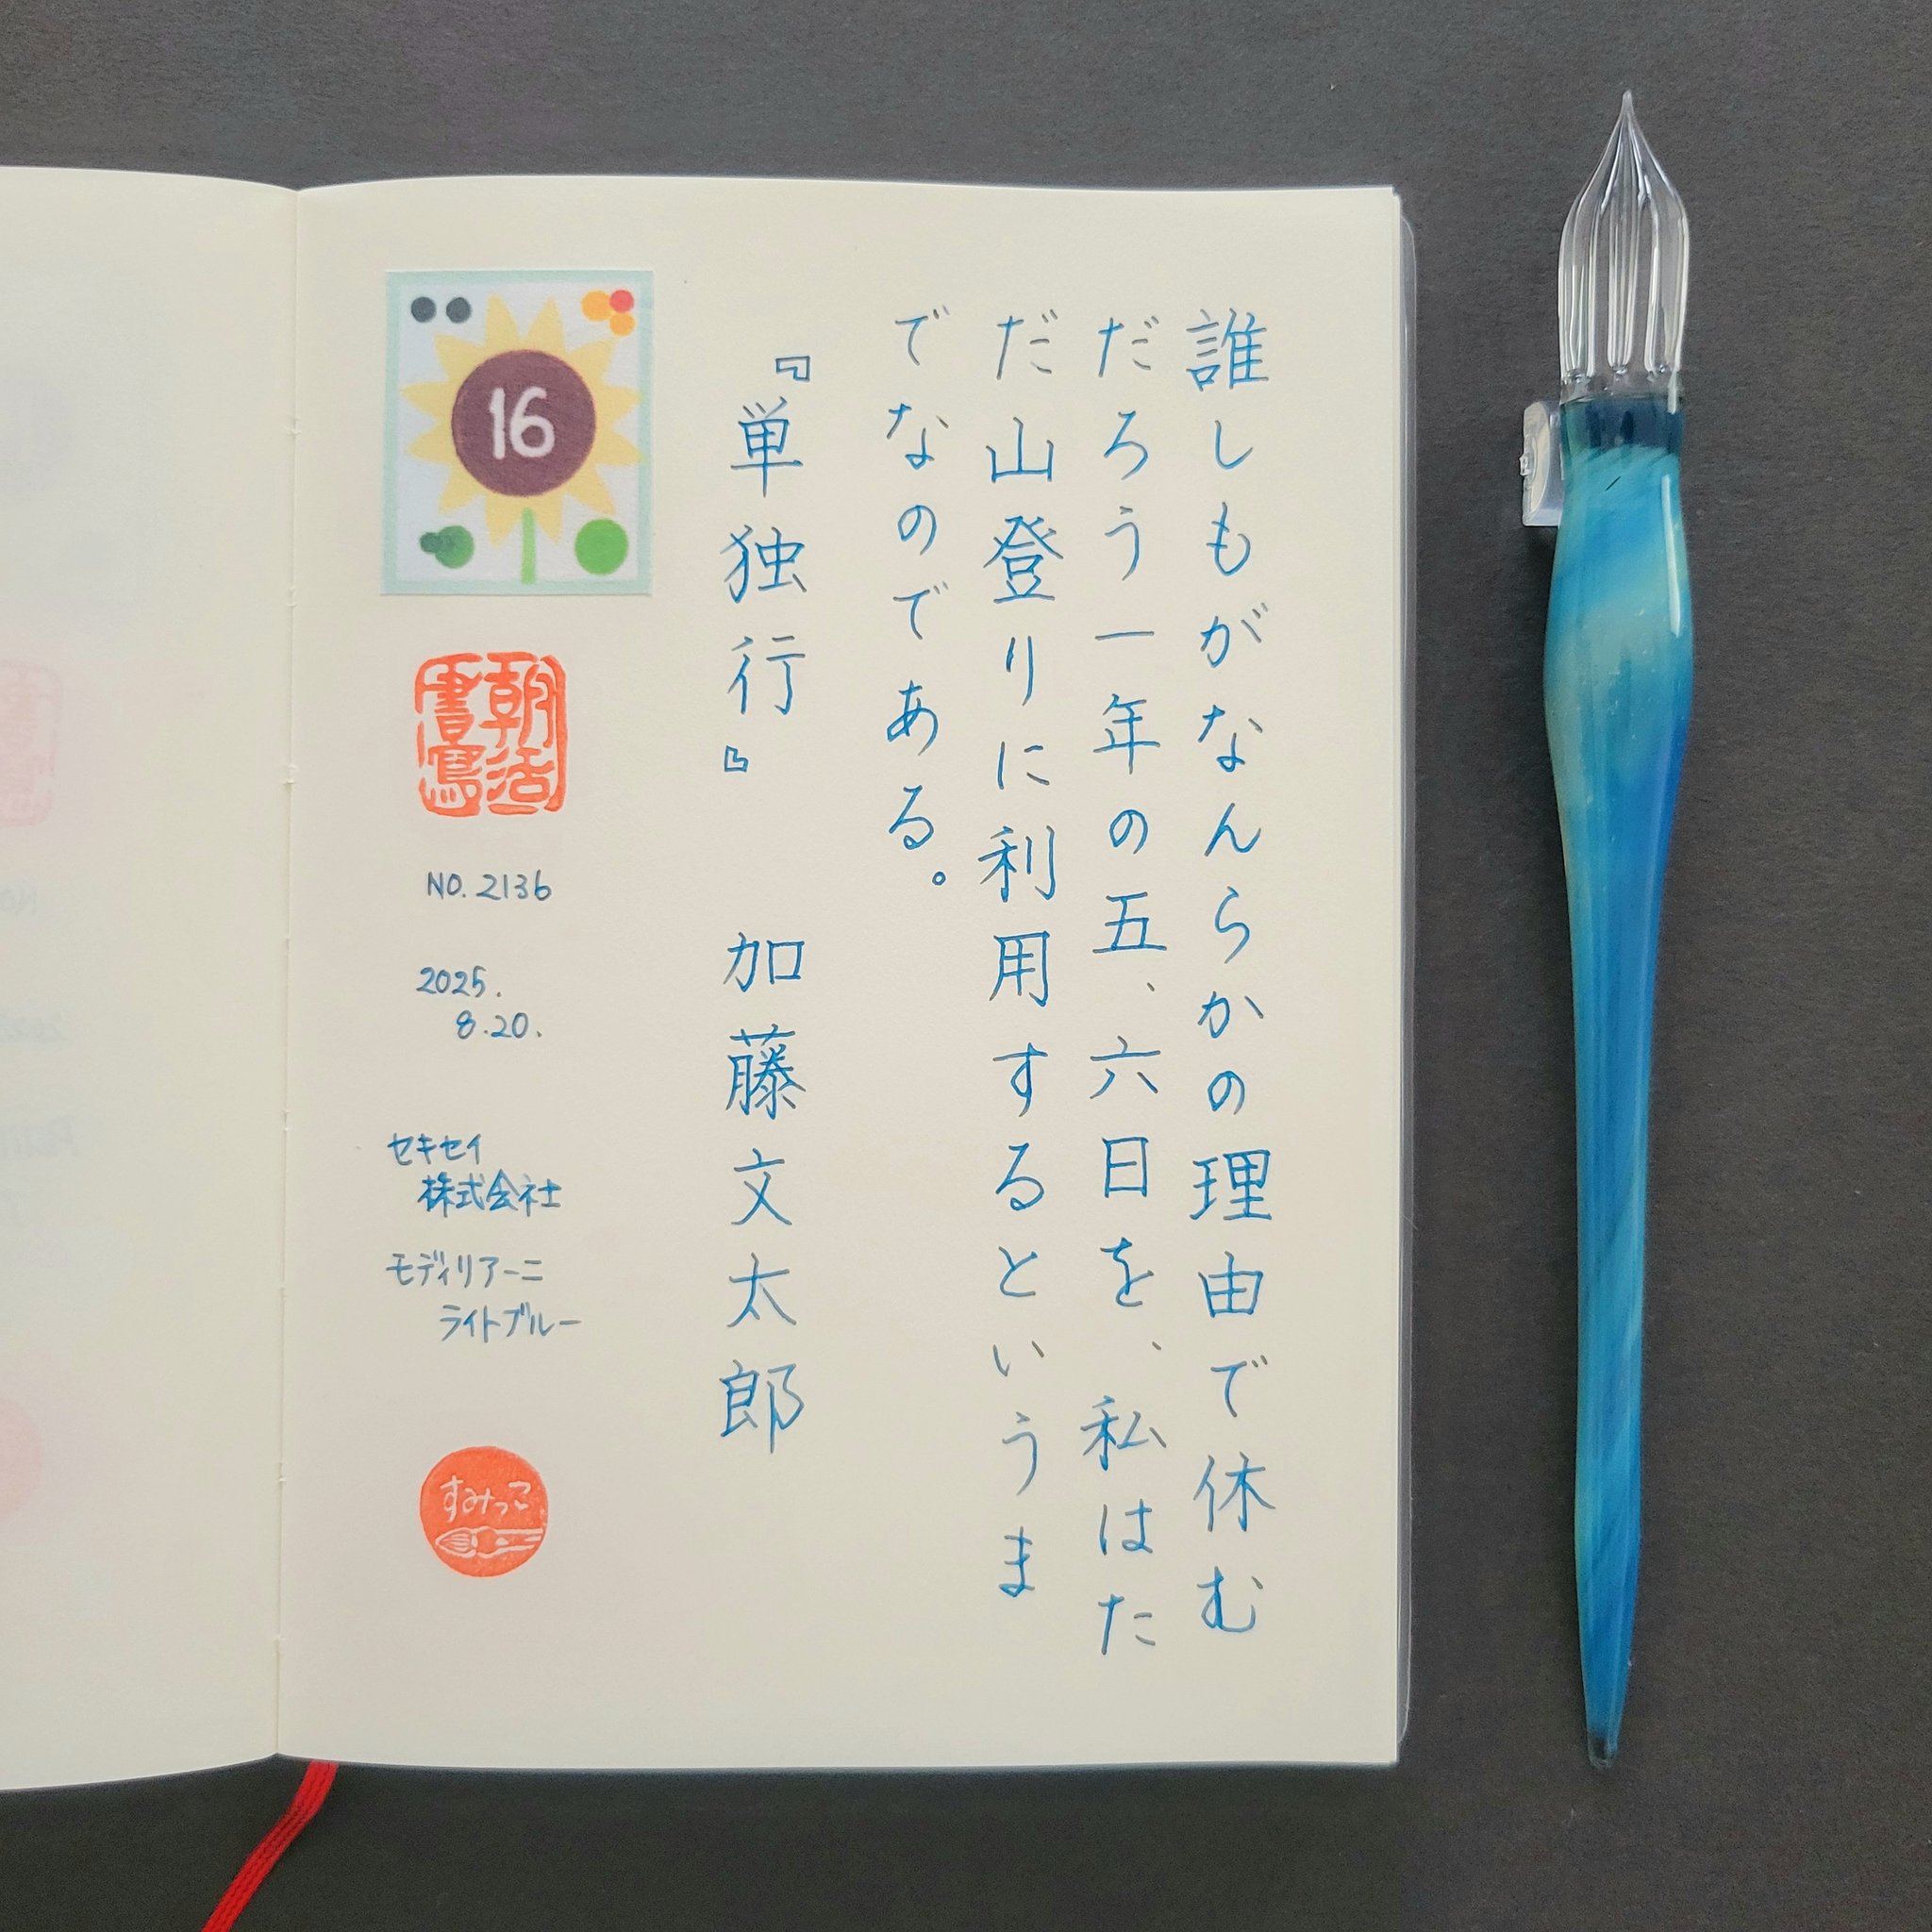 誰しもがなんらかの理由で休む
だろう一年の五、六日を、私はた
だ山登りに利用するというま
でなのである。
『単独行』 加藤文太郎
16
朝活
書寫
NO. 2136
2025.
8.20.
セキセイ
株式会社
モディリアーニ
ライトブルー
すみっこ